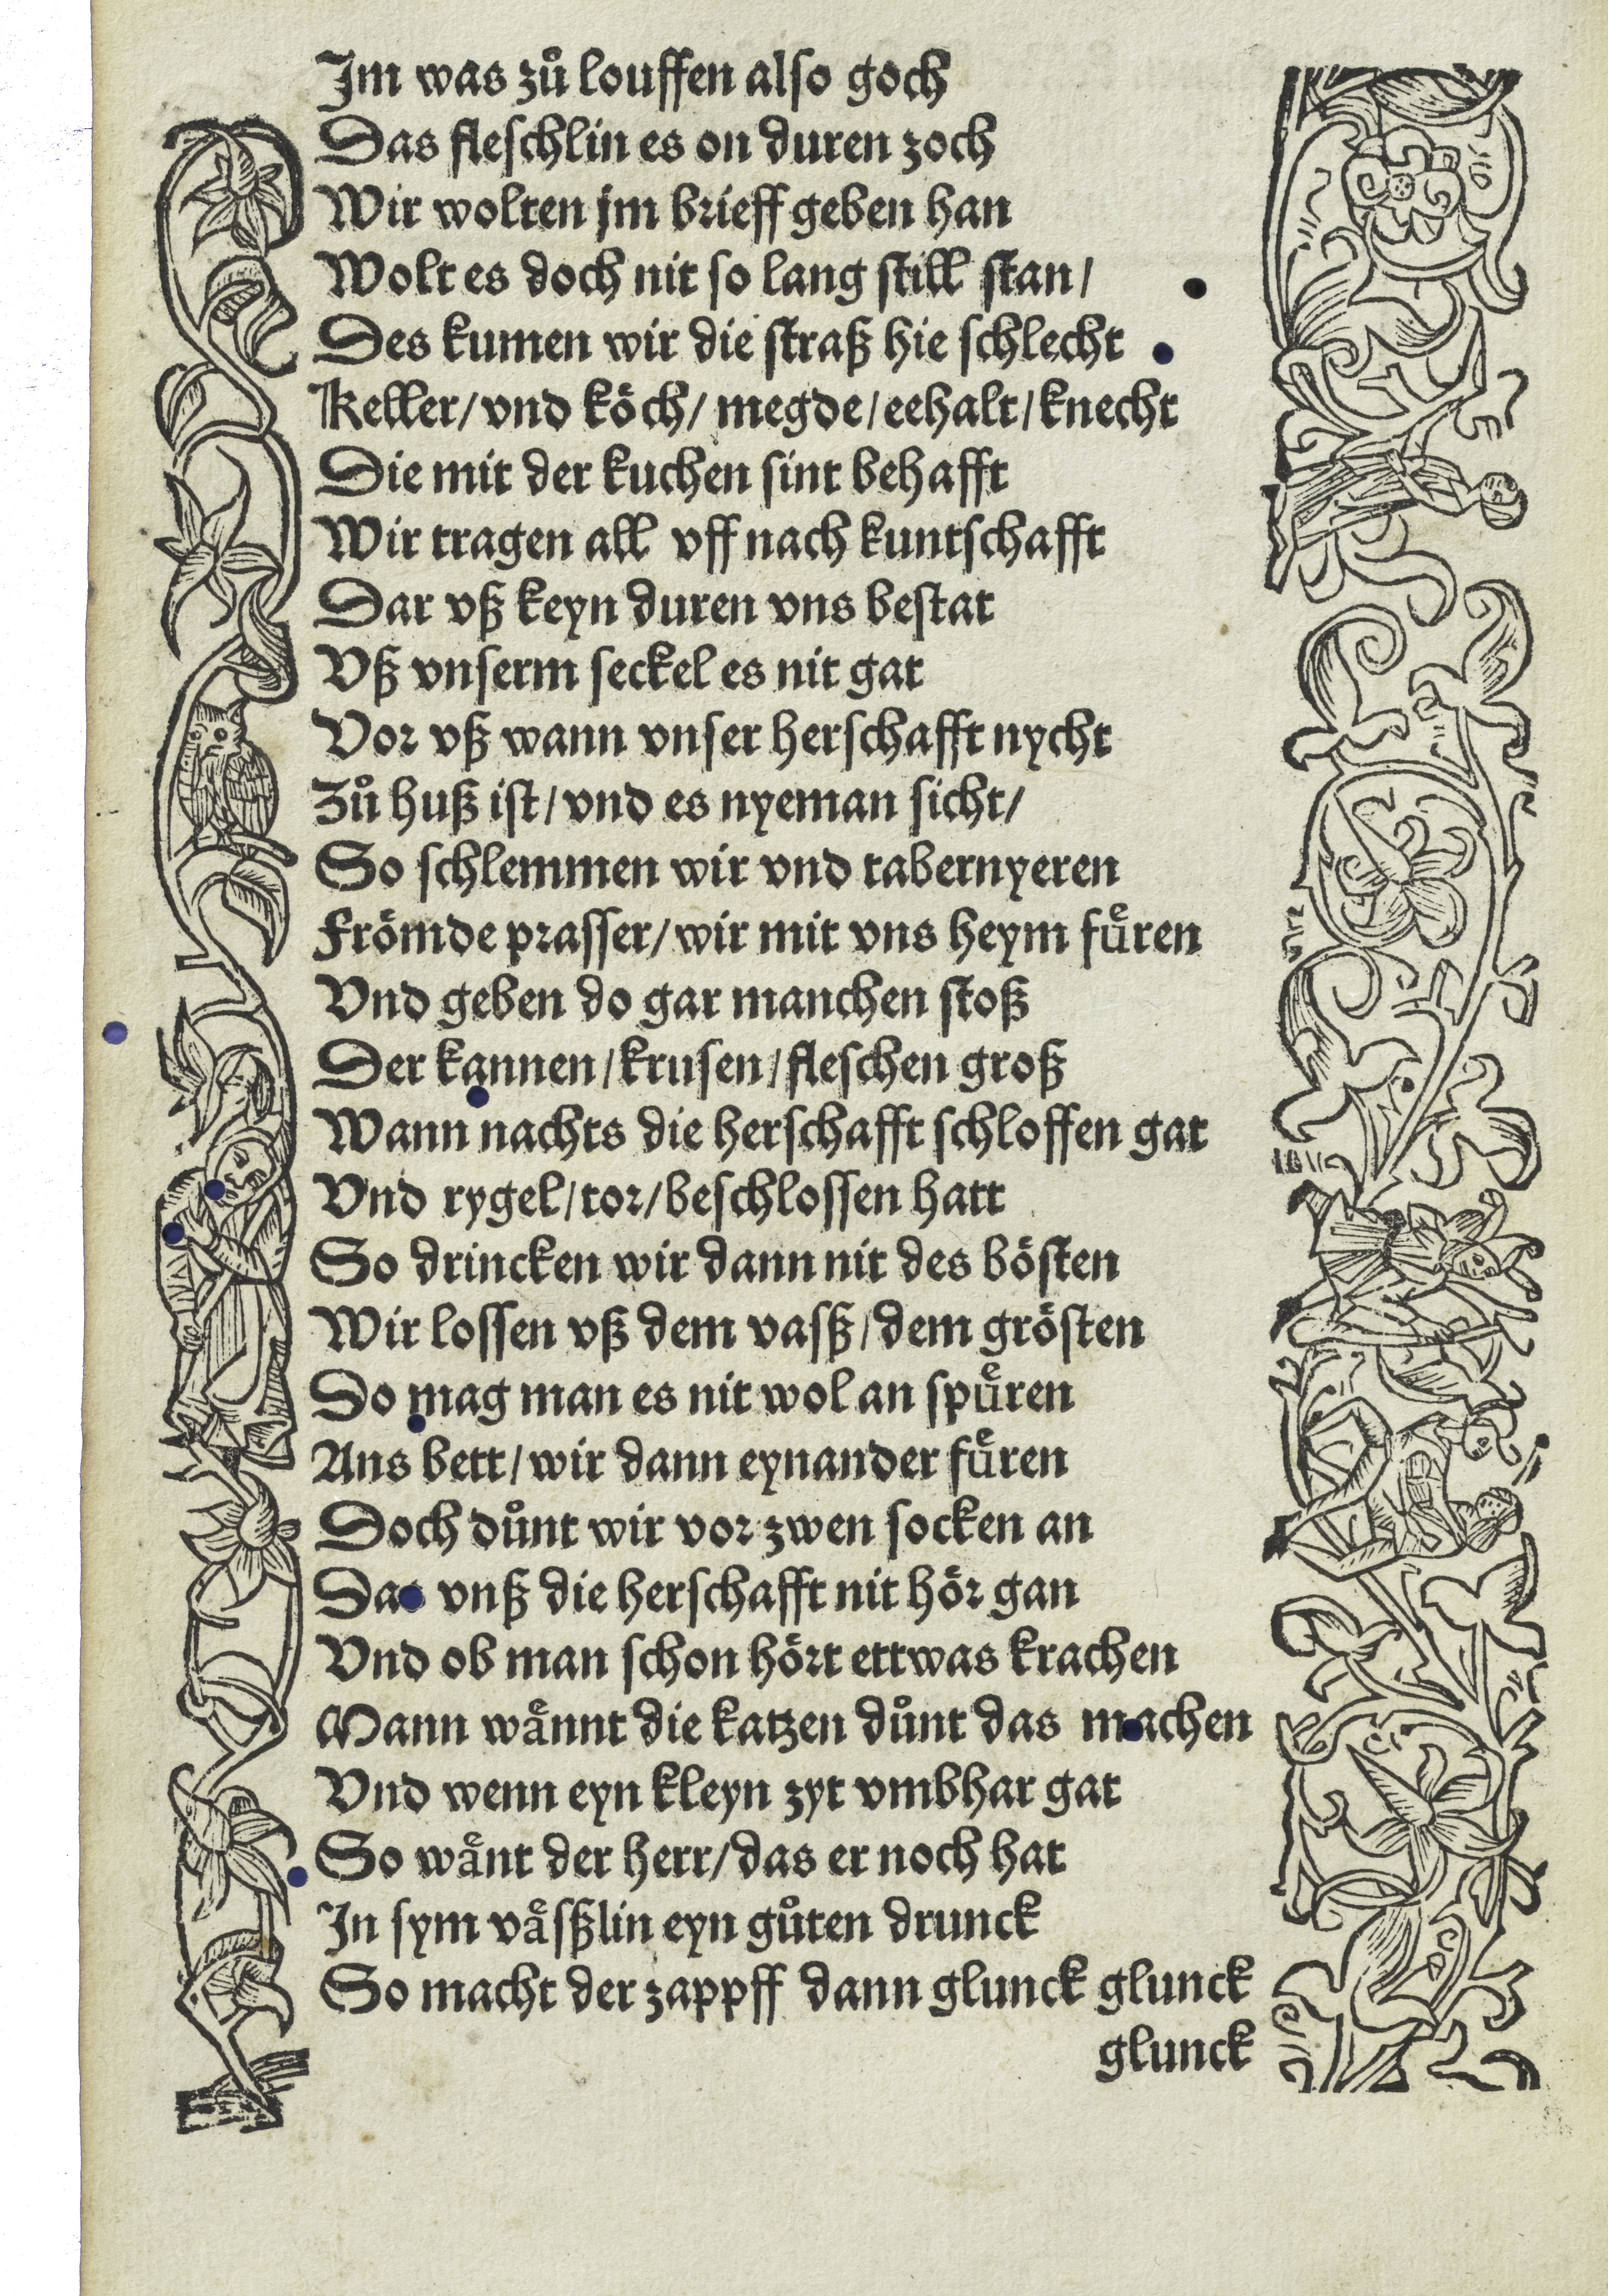 Im was zů louffen also goch
Das fleschlin es on duren zoch
Wir wolten jm brieff geben han
Wolt es doch nit so lang still stan/
Des kumen wir die straß hie schlecht
Keller/vnd köch/megde/eehalt/knecht
Die mit der kuchen sint behafft
Wir tragen all vff nach kuntschafft
Dar vß keyn duren vns bestat
Vß vnserm seckel es nit gat
Vor vß wann vnser herschafft nycht
Zů huß ist/vnd es nyeman sicht/
So schlemmen wir vnd tabernyeren
Frömde prasser/wir mit vns heym fuͤren
Vnd geben do gar manchen stoß
Der kannen/krusen/fleschen groß
Wann nachts die herschafft schloffen gat
Vnd rygel/tor/beschlossen hatt
So drincken wir dann nit des bösten
Wir lossen vß dem vasß/dem grösten
Do mag man es nit wol an spuͤren
Ans bett/wir dann eynander fuͤren
Doch důnt wir vor zwen socken an
Das vnß die herschafft nit hör gan
Vnd ob man schon hört ettwas krachen
Mann waͤnnt die katzen důnt das machen
Vnd wenn eyn kleyn zyt vmbhar gat
So waͤnt der herr/das er noch hat
In sym vaͤsßlin eyn gůten drunck
So macht der zappff dann glunck glunck
glunck